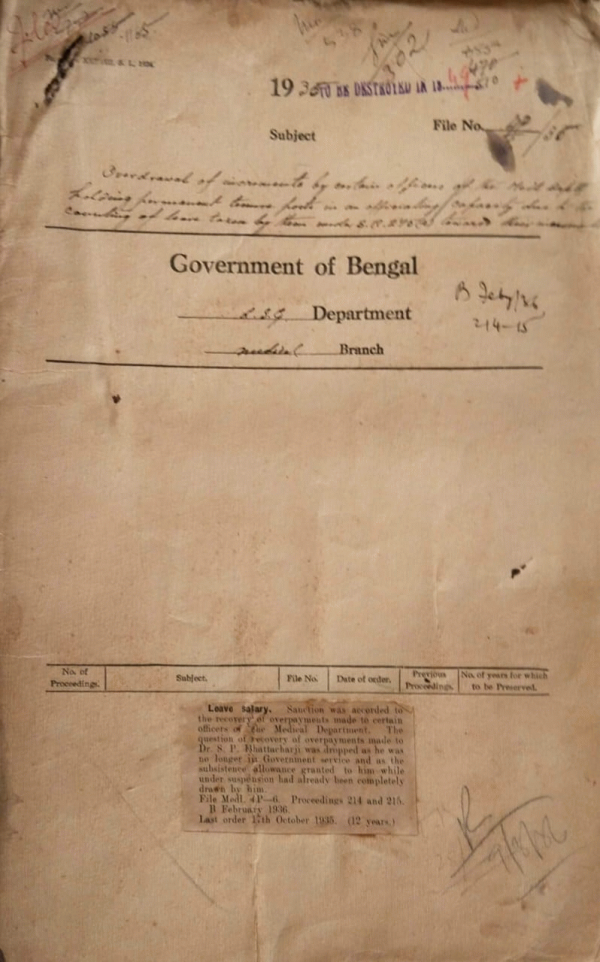 302
1935 TO BE DESTROYED IN 19
File No.
Subject
Overdrawal of increments by certain officers of the Medl Deptt
holding permanent tenure posts in an officiating capacity due to the
counting of leave taken by them under S.R. towards their
Government of Bengal
L.S.G Department
Medical Branch
B Feby/36
214-15
No. of Proceedings. Subject. File No. Date of order. Previous Proceedings. No. of years for which to be Preserved.
Leave salary. Sanction was accorded to
the recovery of overpayments made to certain
officers of the Medical Department. The
question of recovery of overpayments made to
Dr. S. P. Bhattacharji was dropped as he was
no longer in Government service and as the
subsistence allowance granted to him while
under suspension had already been completely
drawn by him.
File Medl. 4P—6. Proceedings 214 and 215.
B February 1936.
Last order October 1935. (12 years.)